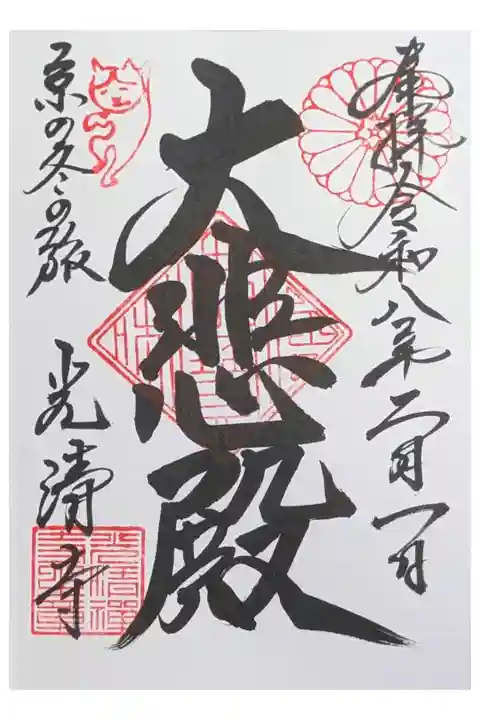 奉拝 令和八年二月一日
大悲殿
京の冬の旅
光清寺